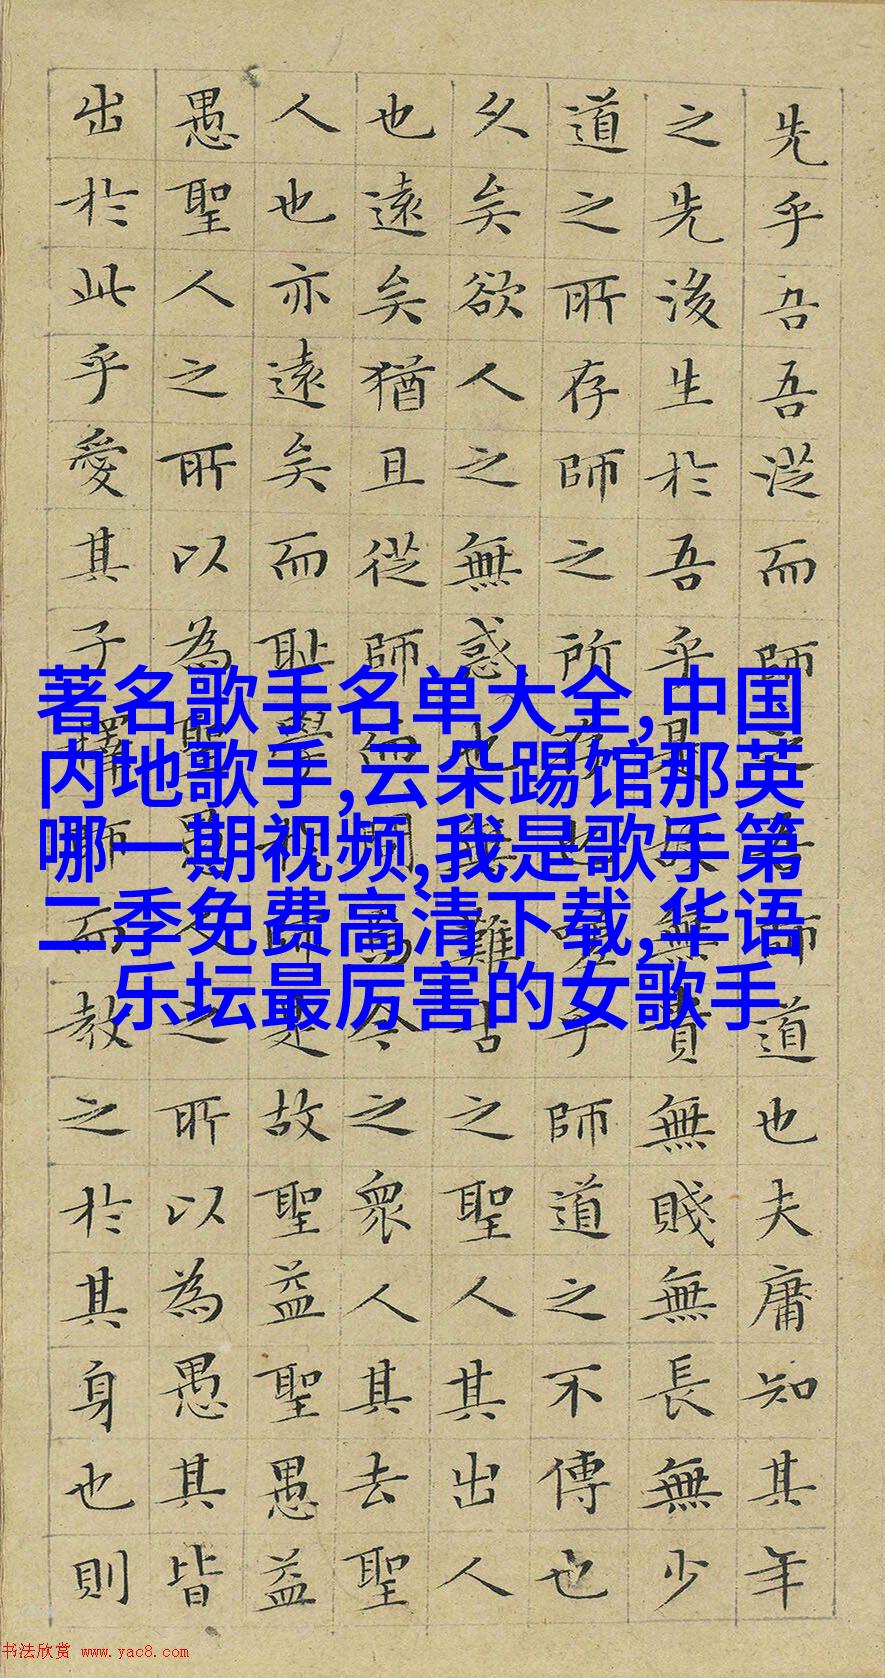 先乎吾吾從而師之吾師道也夫庸知其年
之先後生於吾乎是故無貴無賤無長無少
道之所存師之所存也嗟乎師道之不傳也
久矣欲人之無惑也難古之聖人其出人
也遠矣猶且從師而問焉今之眾人其去聖
人也亦遠矣而恥學於師是故聖益聖愚益
愚聖人之所以為聖愚人之所以為愚其皆
出於此乎愛其子擇師而教之於其身也則
著名歌手名单大全,中国
内地歌手,云朵踢馆那英
哪一期视频,我是歌手第
二季免费高清下载,华语
乐坛最厉害的女歌手
书法欣赏 www.yac8.com